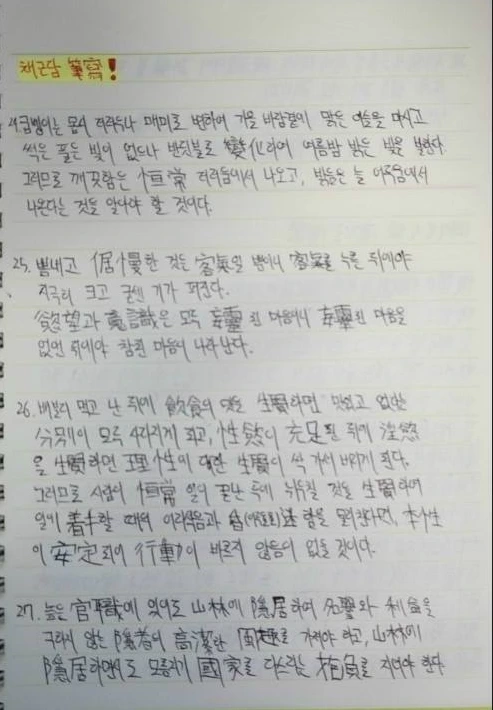 채근담 筆寫!
24. 굼벵이는 몹시 더럽다 매미로 변하여 가을 바람결에 맑은 이슬을 마시고
썩은 풀은 빛이 없으나 반딧불로 變化하여 여름밤 밝은 빛을 발한다.
그러므로 깨끗함은 恒常 더러움에서 나오고, 밝음은 늘 어둠에서
나온다는 것을 알아야 할 것이다.
25. 뽐내고 倨慢한 것은 客氣일 뿐이니 客氣를 누른 뒤에야
지극히 크고 굳센 기가 퍼진다.
慾望과 意識은 모두 된 마음이니 된 마음을
없앤 뒤에야 참된 마음이 나타난다.
26. 배불리 먹고 난 뒤에 飮食의 맛을 生覺하면 맛있고 없는
이 모두 사라지게 되고, 性慾이 充足된 뒤에 淫慾
을 生覺하면 異性에 대한 生覺이 싹 가셔 버리게 된다.
그러므로 사람이 恒常 일이 끝난 뒤에 뉘우칠 것을 生覺하여
일에 着手할 때의 어리석음과 함을 물리친다면, 本性
이 安定되어 行動이 바르지 않음이 없을 것이다.
27. 높은 官職에 있어도 山林에 隱居하여 名譽와 利益을
구하지 않는 隱者의 高潔한 風趣를 가져야 하고, 山林에
隱居하면서도 모름지기 國家를 다스리는 抱負를 지녀야 한다